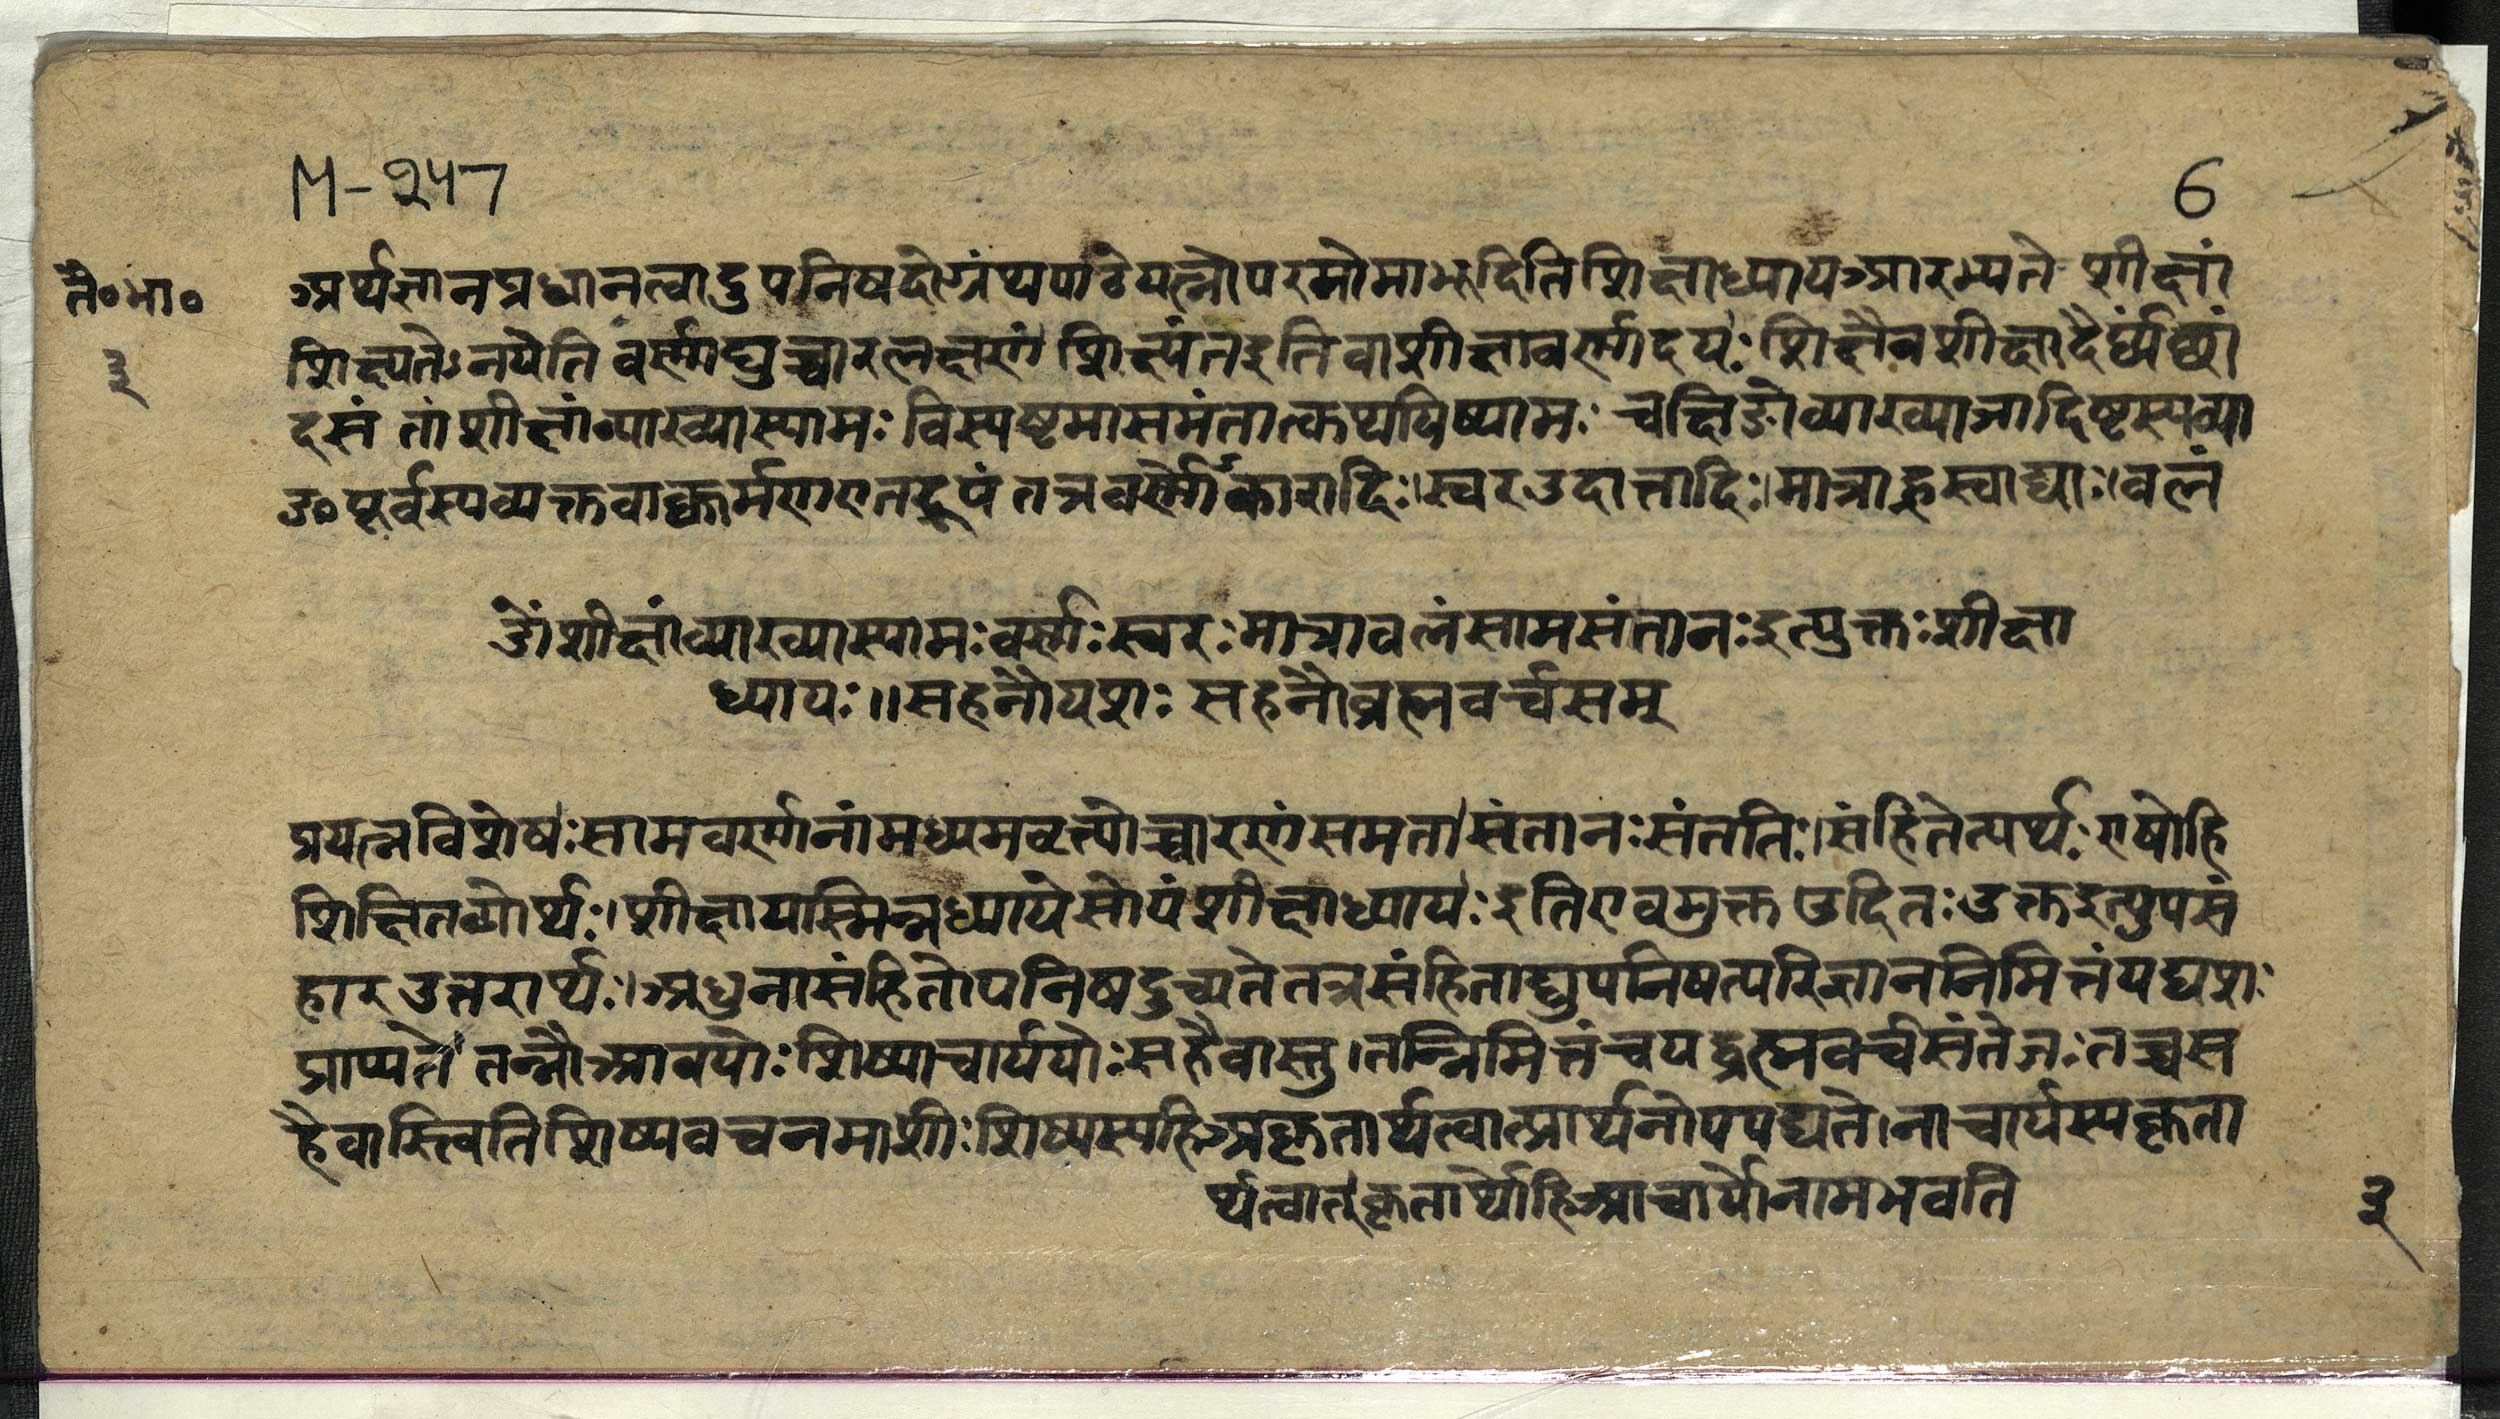 M-२५7
6
तै॰भा॰
३
अर्थज्ञानप्रधानत्वादुपनिषदोग्रंथपाठेयत्नोपरमोमाभूदितिशिक्षाध्यायआरभ्यते शीक्षां
शिक्ष्यतेऽनयेति वर्णाद्युच्चारलक्षणं शिक्ष्यंतइतिवाशीक्षावर्णादयः शिक्षैवशीक्षादैर्घ्यंछां
दसं तांशीक्षांव्याख्यास्यामः विस्पष्टमासमंतात्कथयिष्यामः चक्षिङोव्याख्याञादिष्टस्यव्या
ङ॰पूर्वस्यव्यक्तवाक्कर्मणएतद्रूपं तत्रवर्णोकारादिः।स्वरउदात्तादिः।मात्राह्रस्वाद्याः।वलं
ॐशीक्षांव्याख्यास्यामःवर्णःस्वरःमात्रावलंसामसंतानःइत्युक्तःशीक्षा
ध्यायः॥सहनौयशः सहनौव्रह्मवर्चसम्
प्रयत्नविशेषः सामवर्णानांमध्यमवत्त्योच्चारणंसमता संतानःसंततिः।संहितेत्यर्थः एषोहि
शिक्षितव्योर्थः।शीक्षायास्मिन्नध्यायेसोयंशीक्षाध्यायः इतिएवमुक्त उदितःउक्तइत्युपसं
हारउत्तरार्थः।अधुनासंहितोपनिषदुच्यतेतत्रसंहिताद्युपनिषत्परिज्ञाननिमित्तंयद्यशः
प्राप्यते तन्नौआवयोःशिष्याचार्ययोःसहैवास्तु।तन्निमित्तंचयद्व्रह्मवर्चसंतेजःतच्चस
हैवास्त्वितिशिष्यवचनमाशीःशिष्यस्यहिअकृतार्थत्वात्प्रार्थनोपपद्यते।नाचार्यस्यकृता
र्थत्वात्कृतार्थोहिआचार्योनामभवति
३